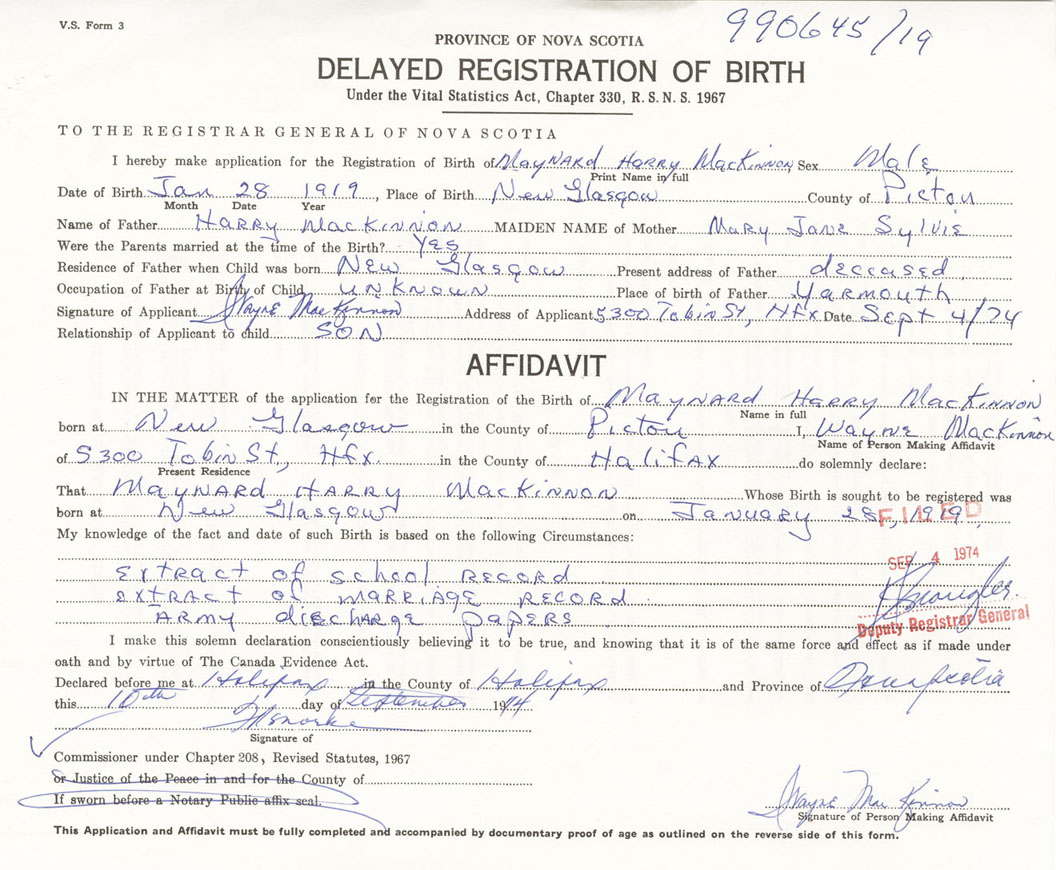 V.S. Form 3
990645/19
PROVINCE OF NOVA SCOTIA
DELAYED REGISTRATION OF BIRTH
Under the Vital Statistics Act, Chapter 330, R.S.N.S. 1967
TO THE REGISTRAR GENERAL OF NOVA SCOTIA
I hereby make application for the Registration of Birth of Maynard Harry MacKinnon Sex Male
Print Name in full
Date of Birth Jan 28 1919, Place of Birth New Glasgow County of Pictou
Month Date Year
Name of Father Harry MacKinnon MAIDEN NAME of Mother Mary Jane Sylvie
Were the Parents married at the time of the Birth? Yes
Residence of Father when Child was born New Glasgow Present address of Father deceased
Occupation of Father at Birth of Child unknown Place of birth of Father Yarmouth
Signature of Applicant Wayne MacKinnon Address of Applicant 5300 Tobin St, Hfx Date Sept 4/74
Relationship of Applicant to child SON
AFFIDAVIT
IN THE MATTER of the application for the Registration of the Birth of Maynard Harry MacKinnon
Name in full
born at New Glasgow in the County of Pictou I, Wayne MacKinnon
Name of Person Making Affidavit
of 5300 Tobin St, Hfx. in the County of Halifax do solemnly declare:
Present Residence
That Maynard Harry MacKinnon Whose Birth is sought to be registered was
born at New Glasgow on January 28, 1919
FILED
My knowledge of the fact and date of such Birth is based on the following Circumstances:
SEP 4 1974
extract of school record
extract of marriage record
Army discharge papers
Deputy Registrar General
I make this solemn declaration conscientiously believing it to be true, and knowing that it is of the same force and effect as if made under
oath and by virtue of The Canada Evidence Act.
Declared before me at Halifax in the County of Halifax and Province of Nova Scotia
this 10th day of September 1974
Signature of
Commissioner under Chapter 208, Revised Statutes, 1967
or Justice of the Peace in and for the County of
If sworn before a Notary Public affix seal.
Wayne MacKinnon
Signature of Person Making Affidavit
This Application and Affidavit must be fully completed and accompanied by documentary proof of age as outlined on the reverse side of this form.